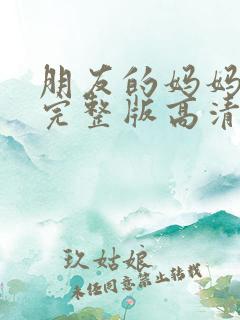 朋友的妈妈
完整版高清
玖姑娘
未经同意禁止转载